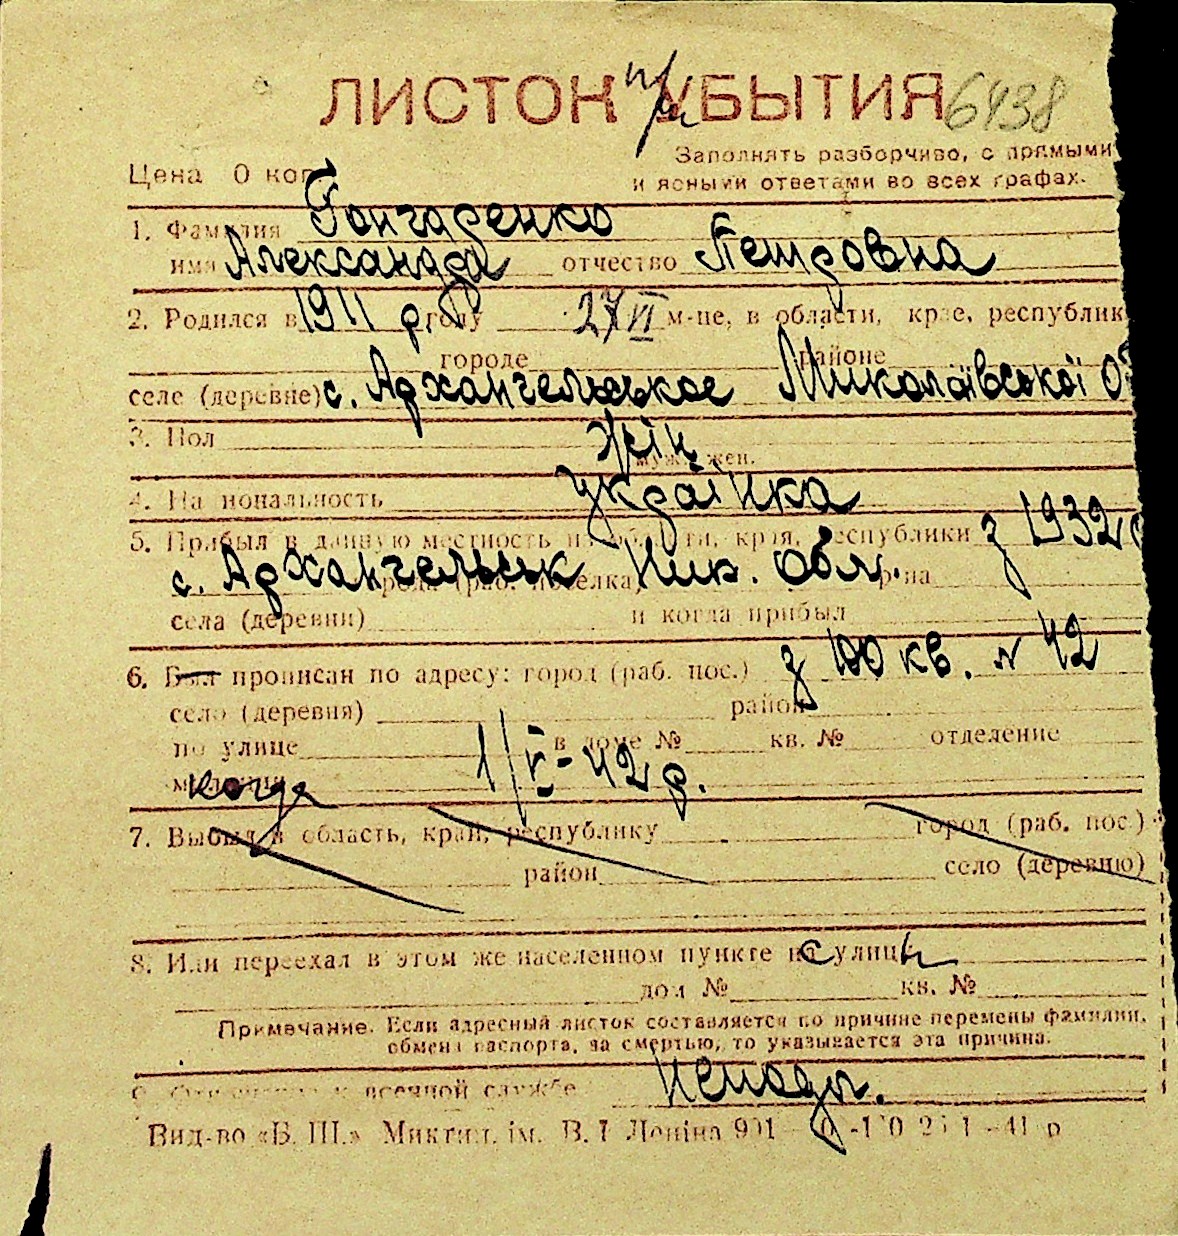 ЛИСТОК при УБЫТИЯ 6438
Цена 0 коп.
Заполнять разборчиво, с прямыми
и ясными ответами во всех графах.
1. Фамилия Гончаренко
имя Александра отчество Петровна
2. Родился в 1911 р. году 27 VI м-це, в области, крае, республик
городе районе
селе (деревне) с. Архангельськое Миколаївської об
3. Пол жін
муж. жен.
4. Национальность українка
5. Прибыл в данную местность из области, края, республики з 1932
с. Архангельськ Ник. обл. города (раб. поселка) р-на
села (деревни) и когда прибыл
6. Был прописан по адресу: город (раб. пос.) з 100 кв. N 42
село (деревня) район
по улице в доме № кв. № отделение
милиции когда 1/V-42 р.
7. Выбыл в область, край, республику город (раб. пос.)
район село (деревню)
8. Или переехал в этом же населенном пункте на с улицы
дом № кв. №
Примечание. Если адресный листок составляется по причине перемены фамилии,
обмена паспорта, за смертью, то указывается эта причина.
9. Отношение к военной службе
Вид-во «Б. Ш.» Микгил. ім. В. І Леніна